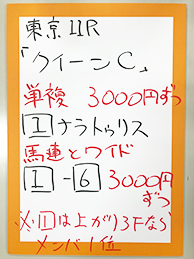 東京11R
「クイーンC」
単複 3000円ずつ
1 ナラトゥリス
馬連とワイド
1 - 6 3000円
ずつ
※1は上がり3Fなら
メンバー1位